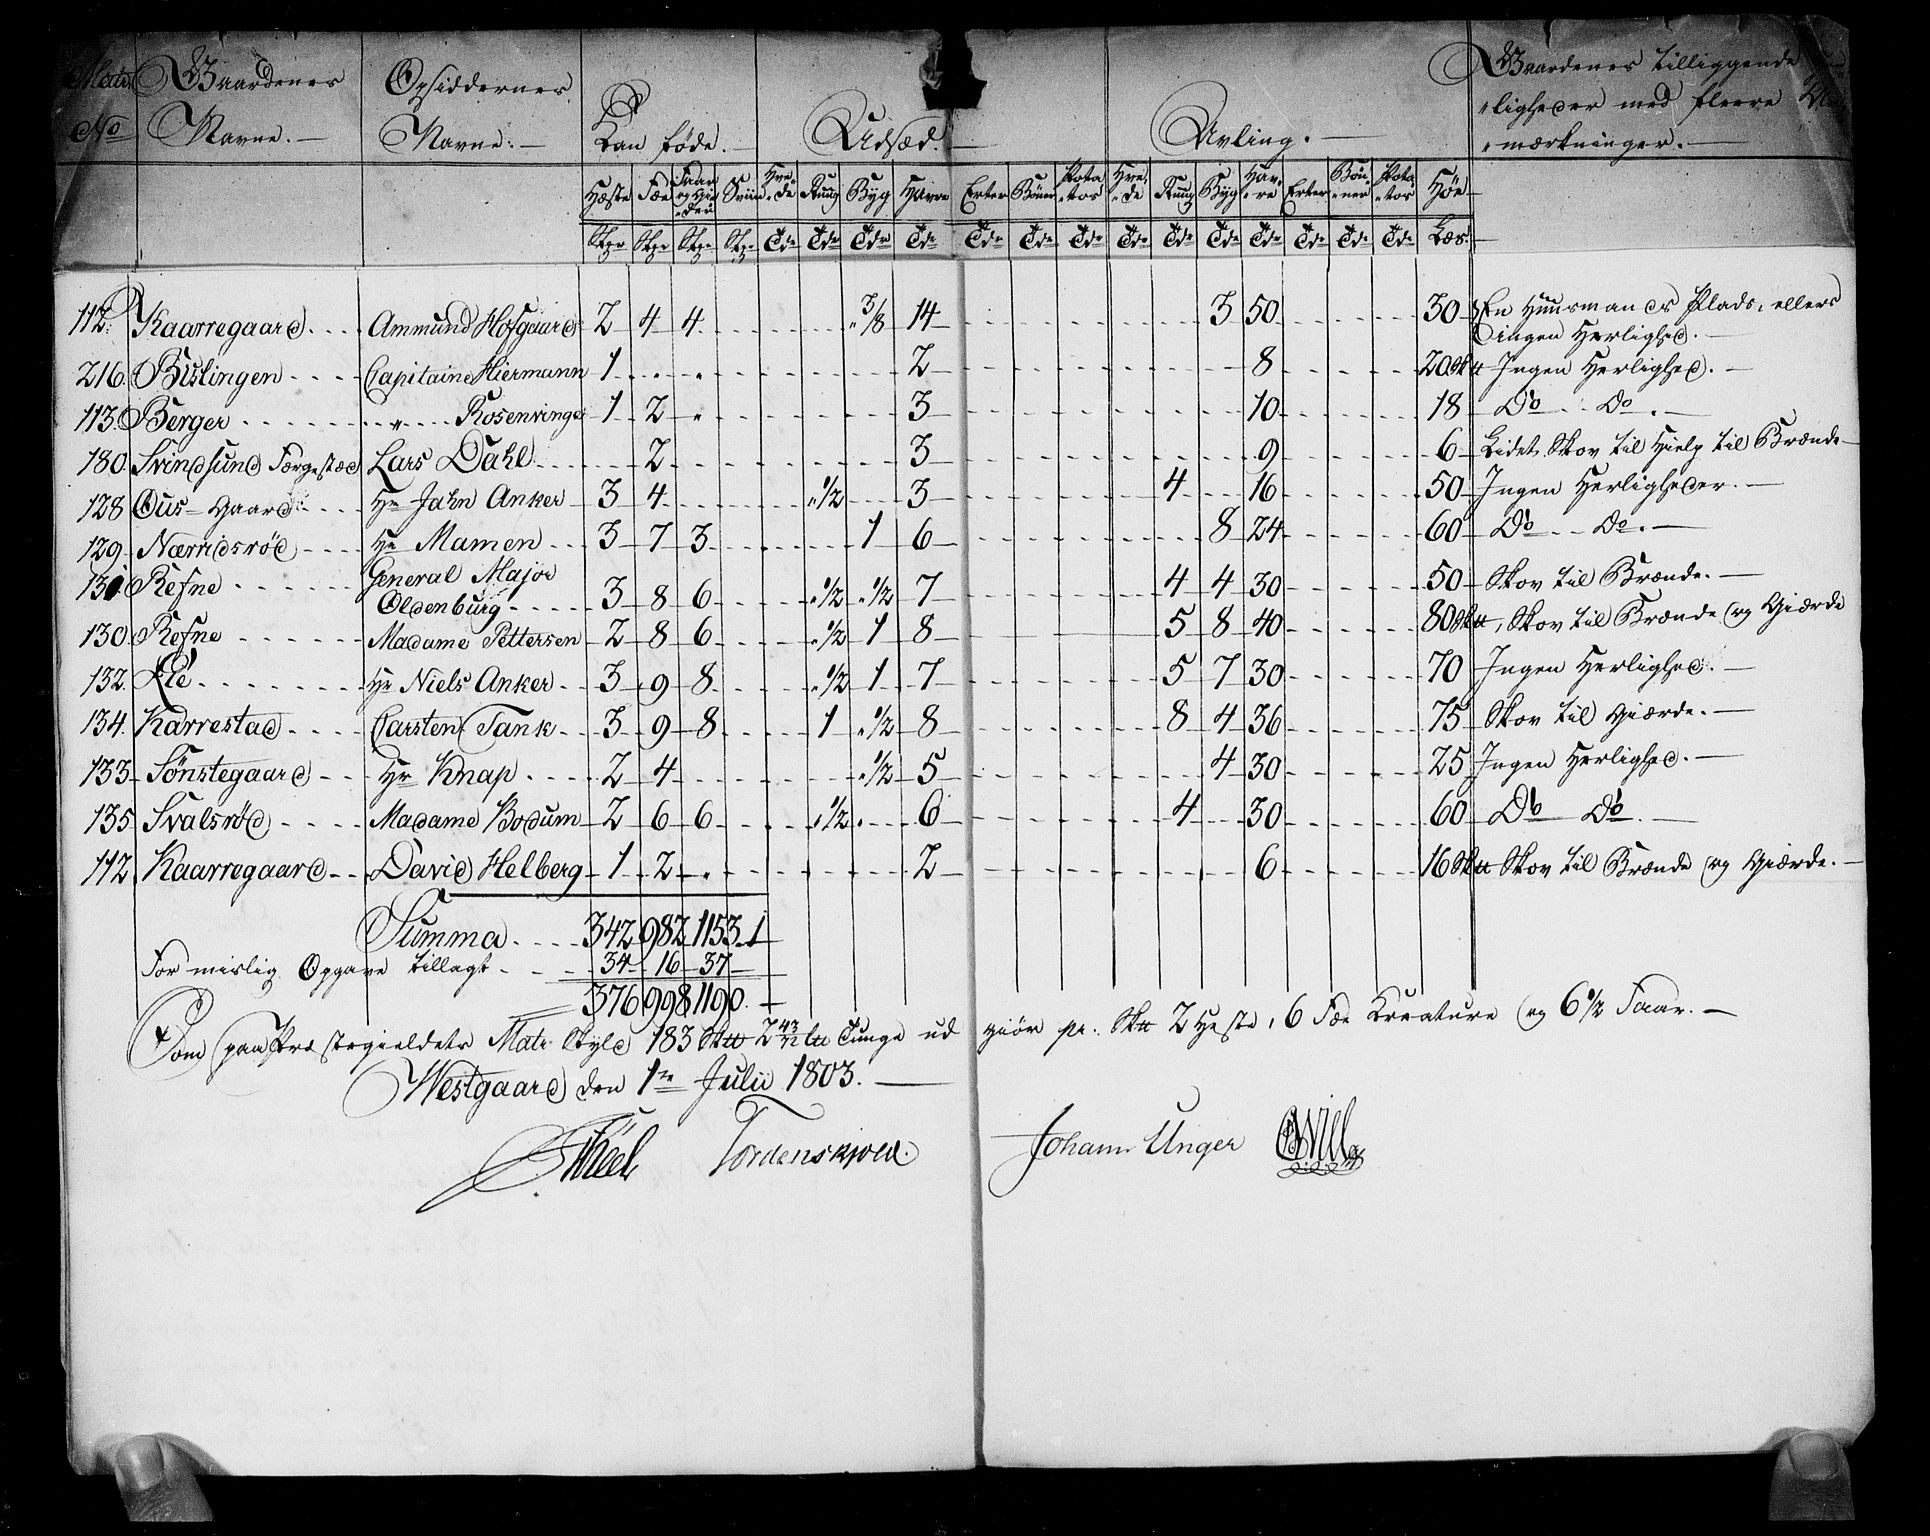 Matr No Gaardenes Navne.— Opsiddernes Navne.— Kan føde.— Udsæd.— Avling.— Gaardenes tilliggende
ligheder med fleere
mærkninger.—
Hæste Fæe Faar og Gieder Sviin Hvede Ruug Byg Havre Erter Bönner Potatos Hvede Ruug Byg Havre Erter Bönner Potatos Høe
Stkr Stkr Stkr Stkr Tdr Tdr Tdr Tdr Tdr Tdr Tdr Tdr Tdr Tdr Tdr Tdr Tdr Tdr Læs.
112. Kaarregaard. Ammund Hofgaard 2 4 4 " 3/8 14 3 50 30 En Huusmands Plads, ellers
ingen Herlighed.—
216. Bislingen Capitaine Hiermann 1 " " 2 8 20 Sk Ingen Herlighed.—
113. Berger " Rosenvinge 1 2 " 3 10 18 Do Do.—
180. Svindsund Færgestæd Lars Dahl 2 3 9 6 Lidet Skov til Hielp til Brænde
128 Ous-gaard Hr Jahn Anker 3 4 " 1/2 3 4 16 50 Ingen Herligheder.—
129. Nærridsrød Hr Mamen 3 7 3 1 6 8 24 60 Do Do.—
131. Refne General Major
Oldenburg 3 8 6 " 1/2 " 1/2 7 4 4 30 50 Skov til Brænde.—
130. Refne Madame Pettersen 2 8 6 " 1/2 1 8 5 8 40 80 Sk, Skov til Brænde og Giærde
132. Lie Hr Niels Anker 3 9 8 " 1/2 1 7 5 7 30 70 Ingen Herlighed.—
134. Karrestad Carsten Tank 3 9 8 1 " 1/2 8 8 4 36 75 Skov til Giærde.—
133 Sönstegaard Hr Knap 2 4 " 1/2 5 4 30 25 Ingen Herlighed.—
135 Svalsrød Madame Bodum 2 6 6 " 1/2 " 6 4 30 60 Do Do.—
112 Kaarregaard David Helberg 1 2 " 2 6 16 Sk Skov til Brænde og Giærde.—
Summa 342 982 1153 1
For mislig Opgave tillagt 34 16 37
376 998 1190.
Som paa Præstegieldets Matr. Skyld 183 Sk 2 43/72 Tunge ud giör pr. Sk 2 Heste, 6 Fæe Kreature og 6 1/2 Faar.—
Westgaard den 1te Julii 1803.—
Tordenskjold. Johann Unger